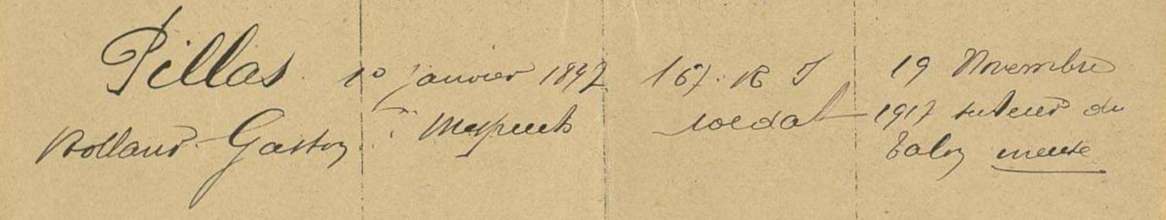 Pillas
Rolland Gaston
10 janvier 1897
à Mespuits
167. R I
soldat
19 Novembre
1917 secteur du
Talou meuse